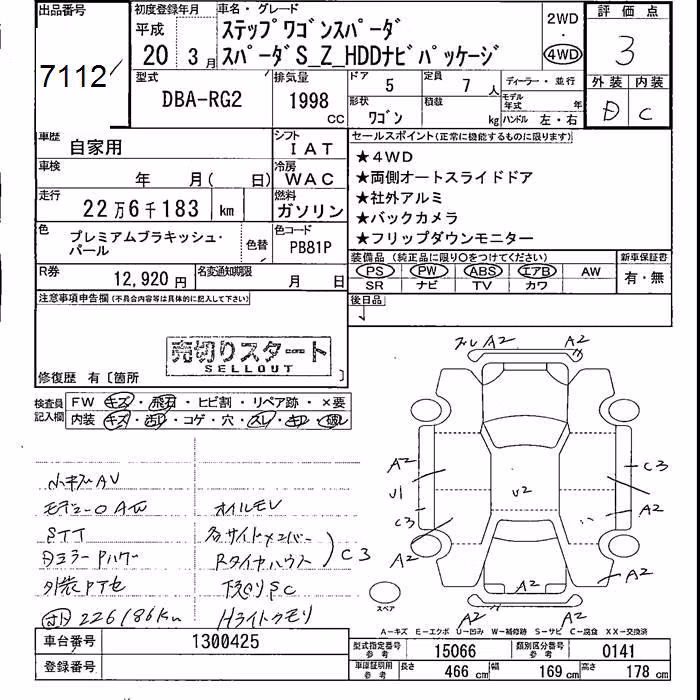 出品番号
7112
初度登録年月
平成
20 3月
車名・グレード
ステップワゴンスパーダ
スパーダS_Z_HDDナビパッケージ
2WD
・
4WD
評価点
3
外装 内装
D C
型式
DBA-RG2
排気量
1998
CC
ドア
5
定員
7人
ディーラー・並行
形状
ワゴン
積載
kg
モデル年式 年
ハンドル 左・右
車歴
自家用
シフト
IAT
車検
年 月( 日)
冷房
WAC
走行
22万6千183 km
燃料
ガソリン
色
プレミアムブラキッシュ・
パール
色替
色コード
PB81P
R券
12,920円
名変通知期限
月 日
セールスポイント(正常に機能するものに限ります)
★4WD
★両側オートスライドドア
★社外アルミ
★バックカメラ
★フリップダウンモニター
装備品 (純正品に限り〇をつけてください)
PS PW ABS エアB AW
SR ナビ TV カワ
新車保証書
有・無
後日品
注意事項申告欄(不具合内容等は具体的に記入して下さい)
売切りスタート
SELLOUT
修復歴 有〔箇所 〕
検査員
記入欄
FW キズ・飛石・ヒビ割・リペア跡・×要
内装 キズ・汚れ・コゲ・穴・スレ・キレ・破レ
小キズAV
オイルモレ
STT
各サイドメンバー
Rタイヤハウス
C3
下廻りSC
226186km
Hライトクモリ
A2
A2
A2
U1
C3
A2
U2
C3
A2
A2
A2
A2
A2
スペア
A-キズ E-エクボ U-凹み W-補修跡 S-サビ C-腐食 XX-交換済
車台番号
1300425
登録番号
型式指定番号
参考
15066
類別区分番号
参考
0141
車庫証明用
参考
長さ 466cm 幅 169cm 高さ 178cm